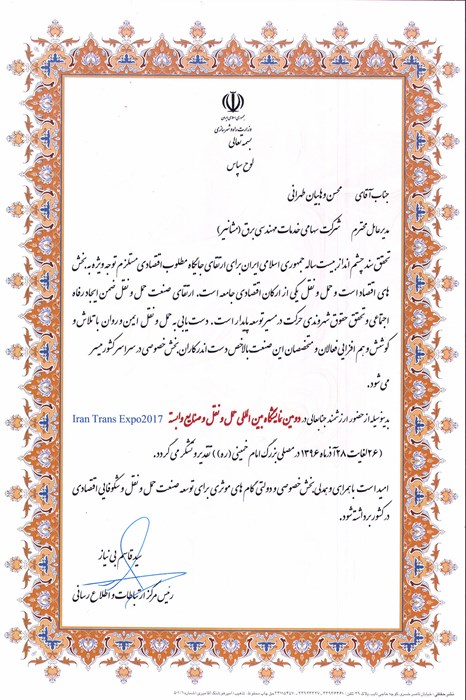 جمهوری اسلامی ایران
وزارت راه و شهرسازی
بسمه تعالی
لوح سپاس
جناب آقای محسن وهابیان طهرانی
مدیرعامل محترم شرکت سهامی خدمات مهندسی برق (مشانیر)
تحقق سند چشم انداز بیست ساله جمهوری اسلامی ایران برای ارتقای جایگاه مطلوب اقتصادی مستلزم توجه ویژه به بخش
های اقتصاد است و حمل و نقل یکی از ارکان اقتصادی جامعه است. ارتقای صنعت حمل و نقل ضمن ایجاد رفاه
اجتماعی و تحقق حقوق شهروندی حرکت در مسیر توسعه پایدار است. دست یابی به حمل و نقل ایمن و روان با تلاش و
کوشش و هم افزایی فعالان و متخصصان این صنعت بالاخص دست اندرکاران بخش خصوصی در سراسر کشور میسر
می شود.
بدینوسیله از حضور ارزشمند جنابعالی در دومین نمایشگاه بین المللی حمل و نقل و صنایع وابسته Iran Trans Expo2017
(۲۶ لغایت ۲۸ آذرماه ۱۳۹۶ در مصلی بزرگ امام خمینی (ره)) تقدیر و تشکر می گردد.
امید است با همراهی و همدلی بخش خصوصی و دولتی گام های موثری برای توسعه صنعت حمل و نقل و شکوفایی اقتصادی
در کشور برداشته شود.
سید قاسم بی نیاز
رئیس مرکز ارتباطات و اطلاع رسانی